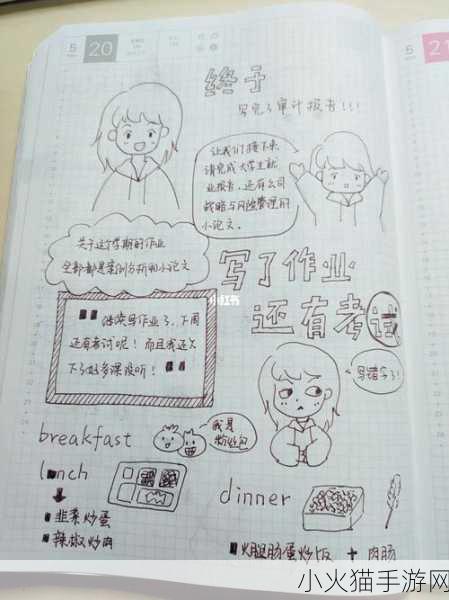 5
20
5
21
终于
写完了审计报告!!!
让我们接下来
请完成大学生就
业报告,还有公司
战略与风险管理的
小论文。
关于这个学期的作业
全部都是案例分析和小论文
写了作业
还有考试
小红书
继续写作业了,下周
还有考试呢!而且我还欠
下了好多课没听!
写错字了!
breakfast
我是
粉丝包
lunch
dinner
韭菜炒蛋
辣椒炒肉
火腿肠蛋炒饭 + 肉肠
小火猫手游网